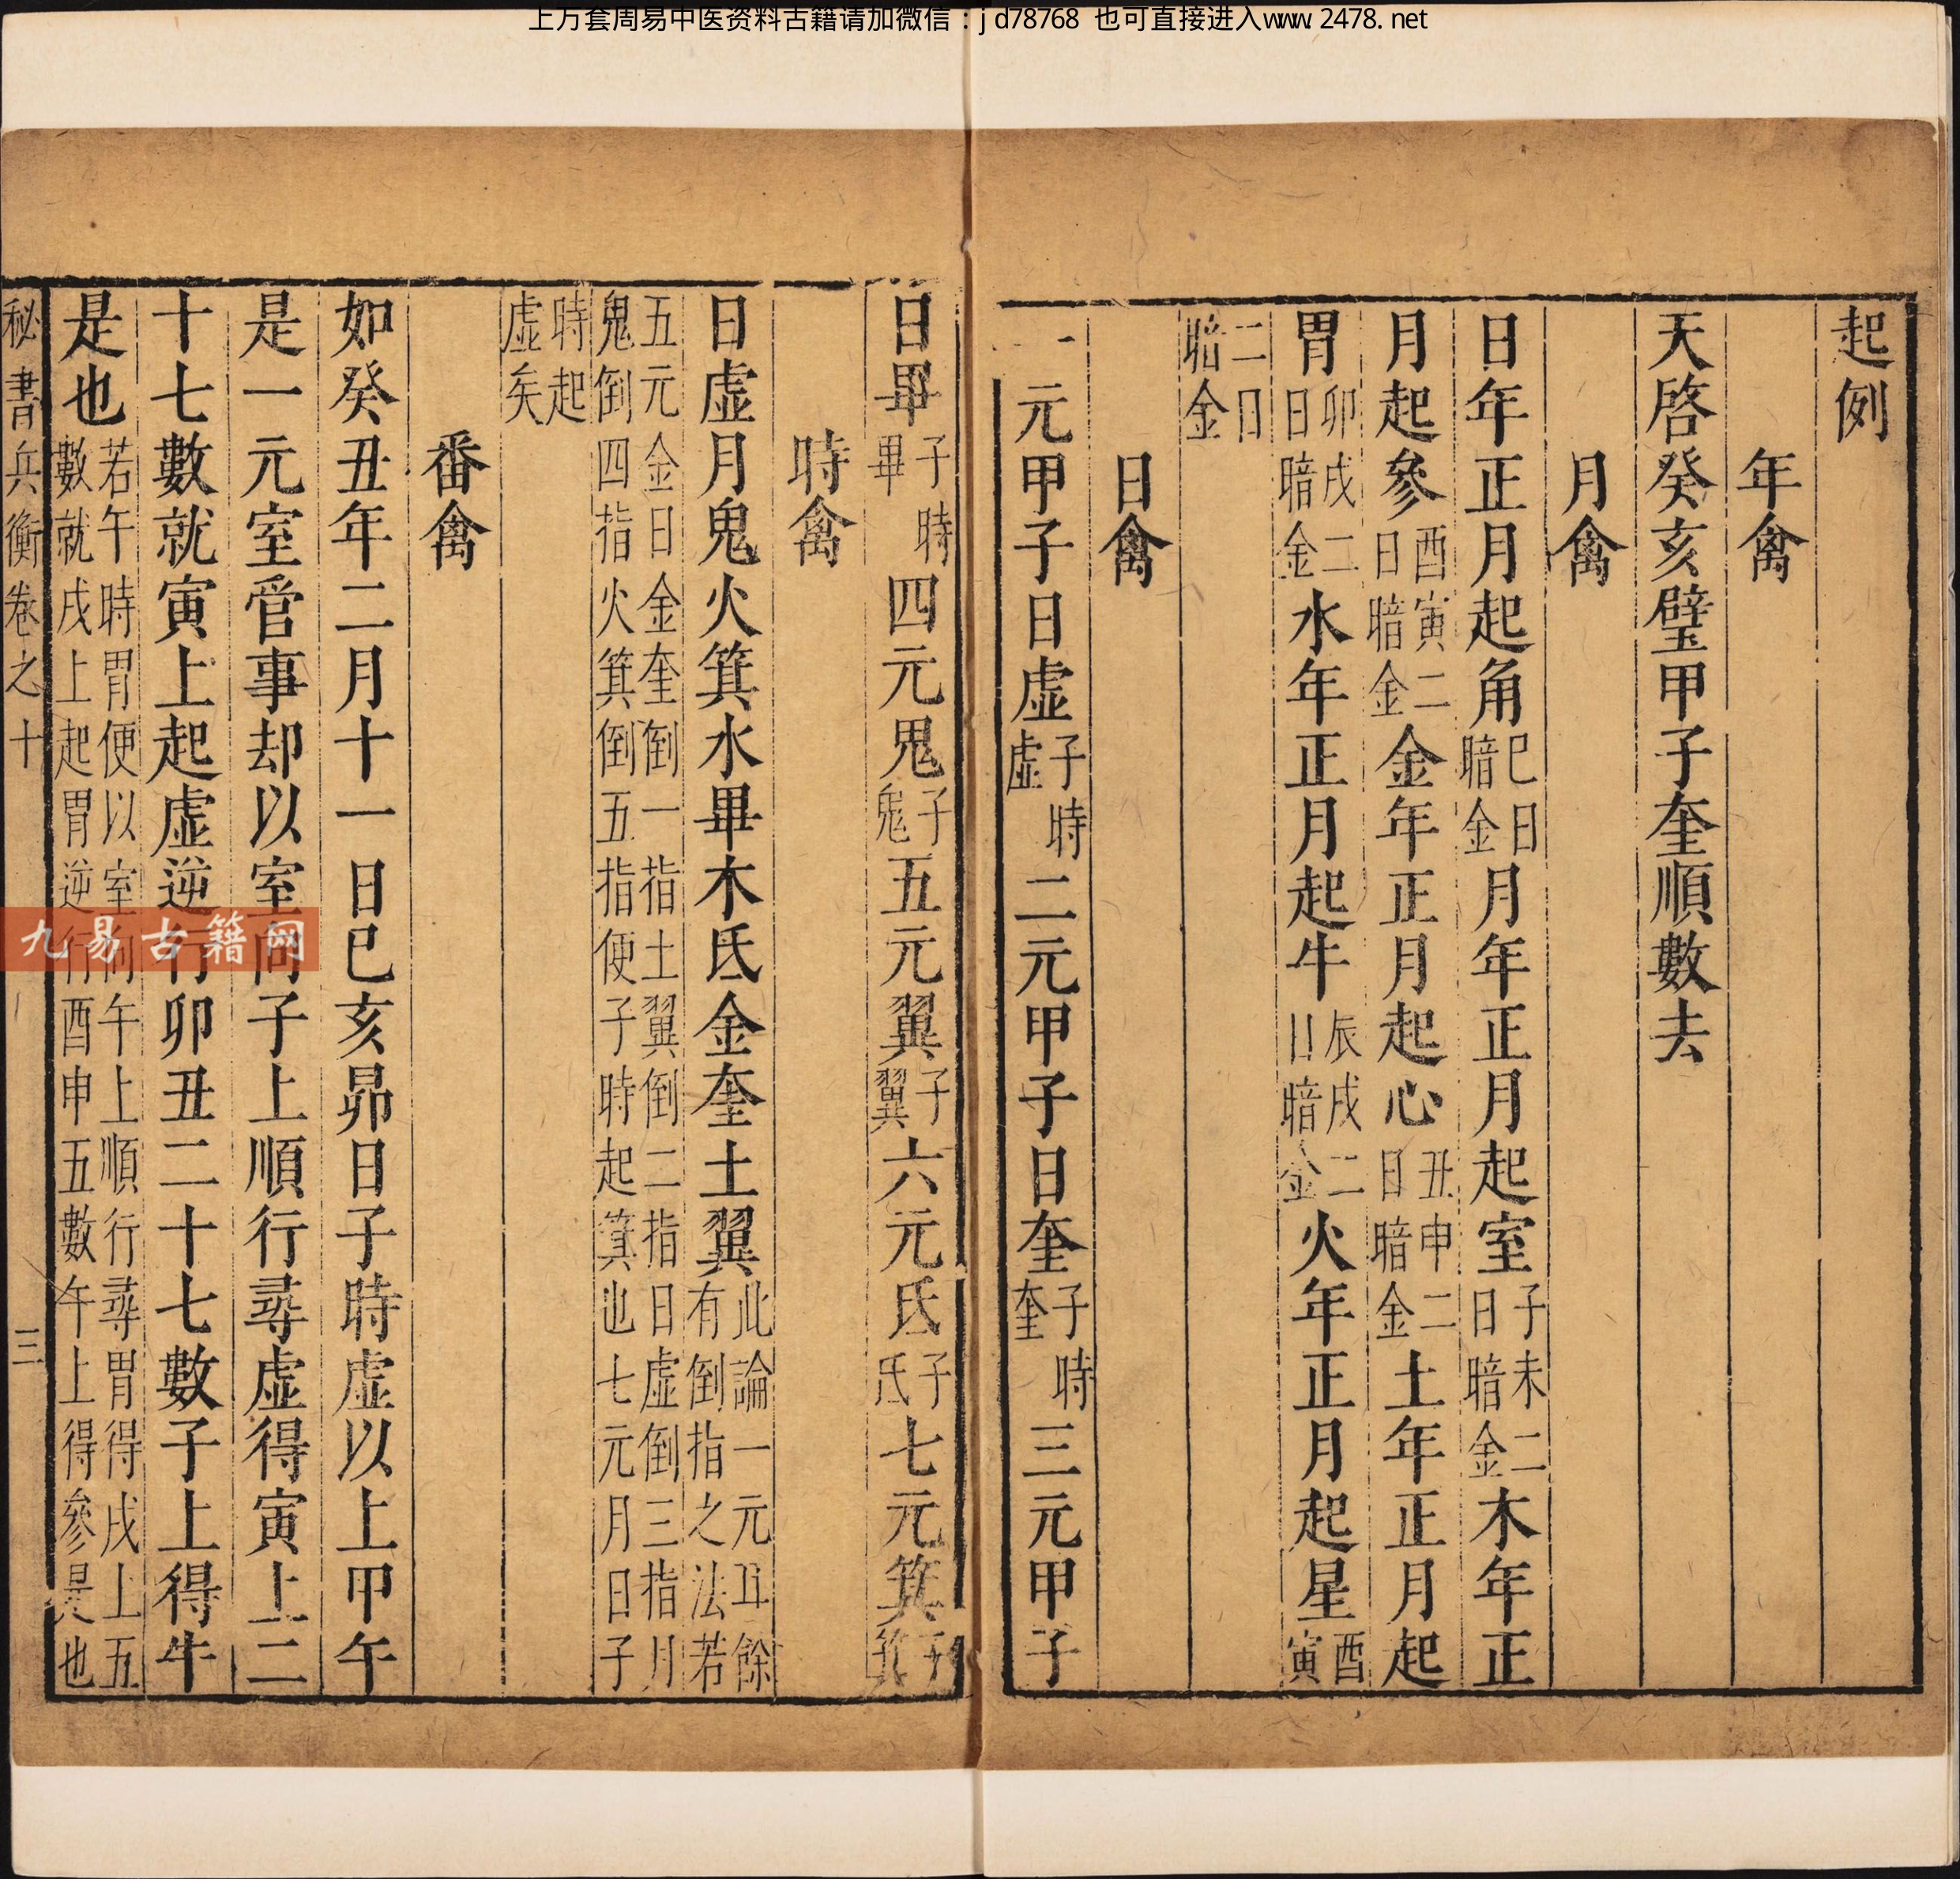 上万套周易中医资料古籍请加微信：jd78768 也可直接进入www.2478.net
起例
年禽
天啓癸亥璧甲子奎順數去
月禽
日年正月起角巳日暗金月年正月起室子未二日暗金木年正
月起參酉寅二日暗金金年正月起心丑申二日暗金土年正月起
胃卯戌二日暗金水年正月起牛辰戌二日暗金火年正月起星酉寅
二日暗金
日禽
一元甲子日虛子時虛二元甲子日奎子時奎三元甲子
日畢子時畢四元鬼子鬼五元翼子翼六元氐子氐七元箕子箕
時禽
日虛月鬼火箕水畢木氐金奎土翼此論一元耳餘有倒指之法若
五元金日金奎倒一指土翼倒二指日虛倒三指月鬼倒四指火箕倒五指便子時起箕也七元月日子
時起虛矣
番禽
如癸丑年二月十一日巳亥昴日子時虛以上甲午
是一元室管事却以室向子上順行尋虛得寅上二
十七數就寅上起虛逆行卯丑二十七數子上得牛
是也若午時胃便以室向午上順行尋胃得戌上五數就戌上起胃逆行酉申五數午上得參是也
秘書兵衡卷之十 三
九易古籍网